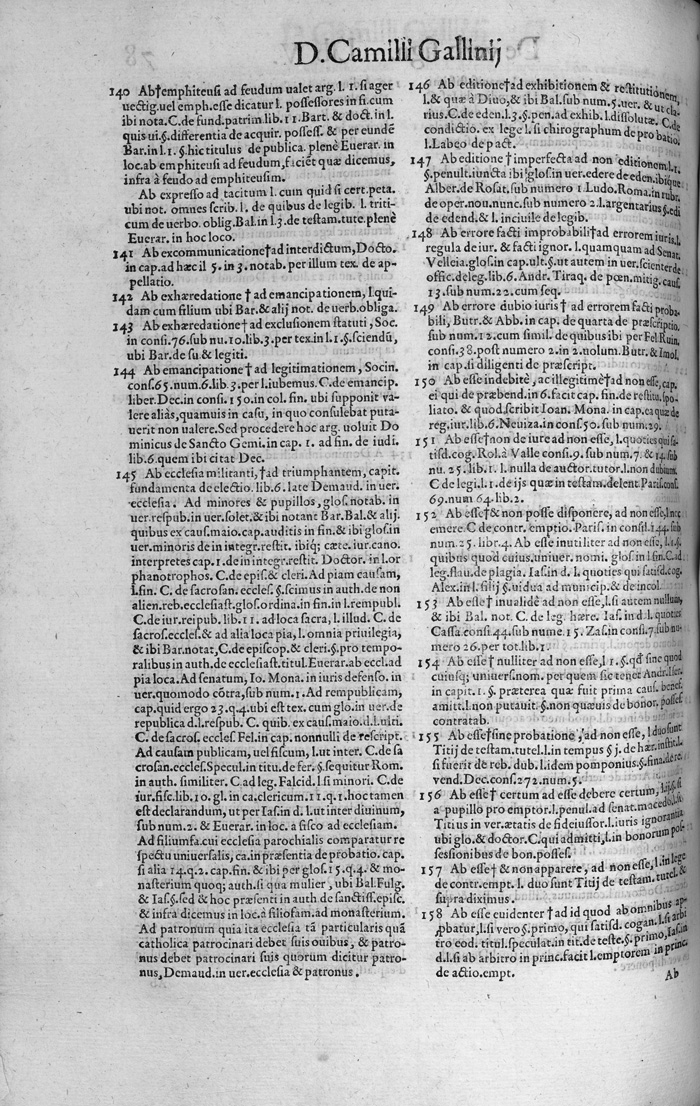 D. Camilli Gallinij
140 Ab†emphiteusi ad feudum ualet arg. l. 1. si ager
uectig. uel emph. esse dicatur l. possessores in fi. cum
ibi nota. C. de fund. patrim. lib. 11. Bart. & doct. in l.
quis ui §. differentia de acquir. possess. & per eundē
Bar. in l. 1. §. hic titulus de publica. plenè Euerar. in
loc. ab emphiteusi ad feudum, faciēt quæ dicemus,
infra à feudo ad emphiteusim.
Ab expresso ad tacitum l. cum quid si cert. peta.
ubi not. omnes scrib. l. de quibus de legib. l. triti-
cum de uerbo. oblig. Bal. in l. 3. de testam. tute. plenè
Euerar. in hoc loco.
141 Ab excommunicatione†ad interdictum, Docto.
in cap. ad hæc il 5. in 3. notab. per illum tex. de ap-
pellatio.
142 Ab exhæredatione † ad emancipationem, l. qui-
dam cum filium ubi Bar. & alij not. de uerb. obliga.
143 Ab exhæredatione† ad exclusionem statuti, Soc.
in consi. 76. sub nu. 10. lib. 3. per tex. in l. 1. §. sciendū,
ubi Bar. de su & legiti.
144 Ab emancipatione † ad legitimationem, Socin.
cons. 65. num. 6. lib. 3. per l. iubemus. C. de emancip.
liber. Dec. in consi. 150. in col. fin. ubi supponit va-
lere aliàs, quamuis in casu, in quo consulebat puta-
uerit non ualere. Sed procedere hoc arg. uoluit Do
minicus de Sancto Gemi. in cap. 1. ad fin. de iudi.
lib. 6. quem ibi citat Dec.
145 Ab ecclesia militanti, †ad triumphantem, capit.
fundamenta de electio. lib. 6. late Demaud. in uer.
ecclesia. Ad minores & pupillos, glos. notab. in
uer. respub. in uer. solet. & ibi notant Bar. Bal. & alij.
quibus ex caus. maio. cap. auditis in fin. & ibi glos. in
uer. minoris de in integr. restit. ibiq; cæte. iur. cano.
interpretes cap. 1. de in integr. restit. Doctor. in l. or
phanotrophos. C. de epis. & cleri. Ad piam causam,
l. fin. C. de sacrosan. eccles. §. scimus in auth. de non
alien. reb. ecclesiast. glos. ordina. in fin. in l. rempubl.
C. de iur. reipub. lib. 11. ad loca sacra, l. illud. C. de
sacros. eccles. & ad alia loca pia, l. omnia priuilegia,
& ibi Bar. notat, C. de episcop. & cleri. §. pro tempo-
ralibus in auth. de ecclesiast. titul. Euerar. ab eccl. ad
pia loca. Ad senatum, Io. Mona. in iuris defenso. in
uer. quomodo cōtra, sub num. 1. Ad rempublicam,
cap. quid ergo 23. q. 4. ubi est tex. cum glo. in uer. de
republica d. l. respub. C. quib. ex caus. maio. d. l. ulti.
C. de sacros. eccles. Fel. in cap. nonnulli de rescript.
Ad causam publicam, uel fiscum, l. ut inter. C. de sa
crosan. eccles. Specul. in titu. de fer. §. sequitur Rom.
in auth. similiter. C ad leg. Falcid. l. si minori. C. de
iur. fisc. lib. 10. gl. in ca. clericum. 11. q. 1. hoc tamen
est declarandum, ut per Ias. in d. l. ut inter diuinum,
sub num. 2. & Euerar. in loc. a fisco ad ecclesiam.
Ad filiumfa. cui ecclesia parochialis comparatur re
spectu uniuersalis, ca. in præsentia de probatio. cap.
si alia 14. q. 2. cap. fin. & ibi per glos. 15. q. 4. & mo-
nasterium quoq; auth. si qua mulier, ubi Bal. Fulg.
& Ias. §. sed & hoc præsenti in auth. de sanctiss. episc.
& infra dicemus in loc. à filiofam. ad monasterium.
Ad patronum quia ita ecclesia tā particularis quā
catholica patrocinari debet suis ouibus, & patro-
nus debet patrocinari suis quorum dicitur patro-
nus, Demaud. in uer. ecclesia & patronus.
146 Ab editione†ad exhibitionem & restitutionem,
l. & quæ à Diuo, & ibi Bal. sub num. 5. uer. & ut cla-
rius. C. de eden. l. 3. §. pen. ad exhib. l. dissolutæ. C. de
condictio. ex lege l. si chirographum de probatio.
l. Labeo de pact.
147 Ab editione † imperfecta ad non editionem l. 1.
§. penult. iuncta ibi glos. in uer. edere de eden. ibique
Alber. de Rosat. sub numero 1 Ludo. Roma. in rubr.
de oper. nou. nunc. sub numero 2. l. argentarius §. edi
de edend. & l. inciuile de legib.
148 Ab errore facti improbabili†ad errorem iuris, l.
regula de iur. & facti ignor. l. quamquam ad Senat.
Velleia, glos. in cap. ult. §. ut autem in uer. scienter de
offic. deleg. lib. 6. Andr. Tiraq. de pœn. mitig. caus.
13. sub num. 22. cum seq.
149 Ab errore dubio iuris † ad errorem facti proba
bili, Butr. & Abb. in cap. de quarta de præscriptio.
sub num. 12. cum simil. de quibus ibi per Fel. Ruin.
consi. 38. post numero 2. in 2. uolum. Butr. & Imol.
in cap. si diligenti de præscript.
150 Ab esse indebitè, ac illegitimè†ad non esse, cap.
ei qui de præbend. in 6. facit cap. fin. de restit. spo-
liato. & quod scribit Ioan. Mona. in cap. ea quæ de
reg. iur. lib. 6. Neuiza. in cons. 50. sub num. 29.
151 Ab esse†non de iure ad non esse, l. quoties qui sa-
tisd. cog. Rol. à Valle cons. 9. sub num. 7. & 14. sub
nu. 25. lib. 1. l. nulla de auctor. tutor. l. non dubium.
C de legi. l. 1. de ijs quæ in testam. delent. Paris. cons.
69. num 64. lib. 2.
152 Ab esse†& non posse disponere, ad non esse, l. nec
emere C de contr. emptio. Paris. in consil. 144. sub
num. 25. libr. 4. Ab esse inutiliter ad non esse, l. 4. §.
quibus quod cuius. uniuer. nomi. glos. in l. fin. C. ad
leg. flau. de plagia. Ias. in d. l. quoties qui satisd. cog.
Alex. in l. filij §. uidua ad municip. & de incol.
153 Ab esse† inualidè ad non esse, l. si autem nullum,
& ibi Bal. not. C. de leg. hære. Ias. in d. l. quoties
Cassa. consi. 44. sub nume. 15. Zas. in consi. 7. sub nu-
mero 26. per tot. lib. 1.
154 Ab esse† nulliter ad non esse, l 1. §. qd sine quod
cuiusq; uniuers. nom. per quem sic tenet Andr. Iser.
in capit. 1. §. præterea quæ fuit prima caus. benef.
amitt. l. non putauit. §. non quæuis de bonor. posses.
contratab.
155 Ab esse†sine probatione, ad non esse, l. duo sunt
Titij de testam. tutel. l. in tempus § j. de hær. instit. l.
si fuerit de reb. dub. l. idem pomponius §. fina. de re
vend. Dec. cons. 272. num. 5.
156 Ab esse† certum ad esse debere certum,
a pupillo pro emptor. l. penul. ad senat. macedo.
Titius in ver. ætatis de fideiussor. l. iuris ignorantia
ubi glo. & doctor. C. qui admitti, l. in bonorum pos-
sessionibus de bon. posses.
157 Ab esse† & non apparere, ad non esse, l. in lege
de contr. empt. l. duo sunt Titij de testam. tutel. &
supra diximus.
158 Ab esse euidenter †ad id quod ab omnibus ap-
pbatur, l. si vero §. primo, qui satisd. cogan. l. si arbi
tro eod. titul. speculat. in tit. de teste. §. primo, Ias. in
d. l. si ab arbitro in princ. facit l. emptorem in princ.
de actio. empt.
Ab